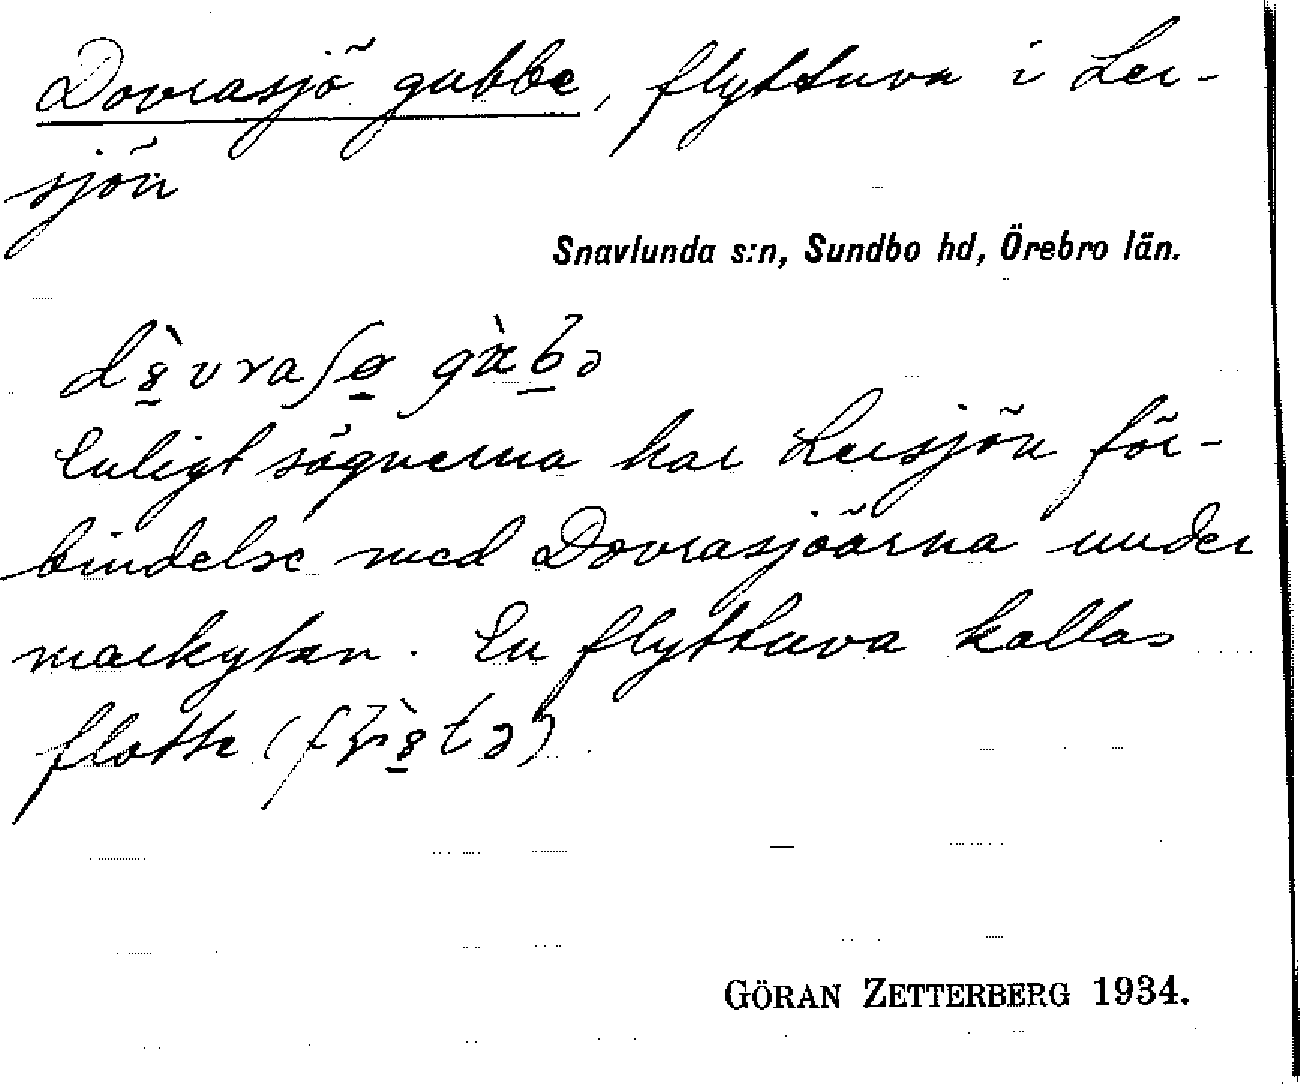 Dovrasjö gubbe, flyttuva i Ler-
sjön
Snavlunda s:n, Sundbo hd, Örebro län.
Enligt sägnerna har Lersjön för-
bindelse med Dovrasjöarna under
markytan. En flyttuva kallas
flotte
GÖRAN ZETTERBERG 1934.